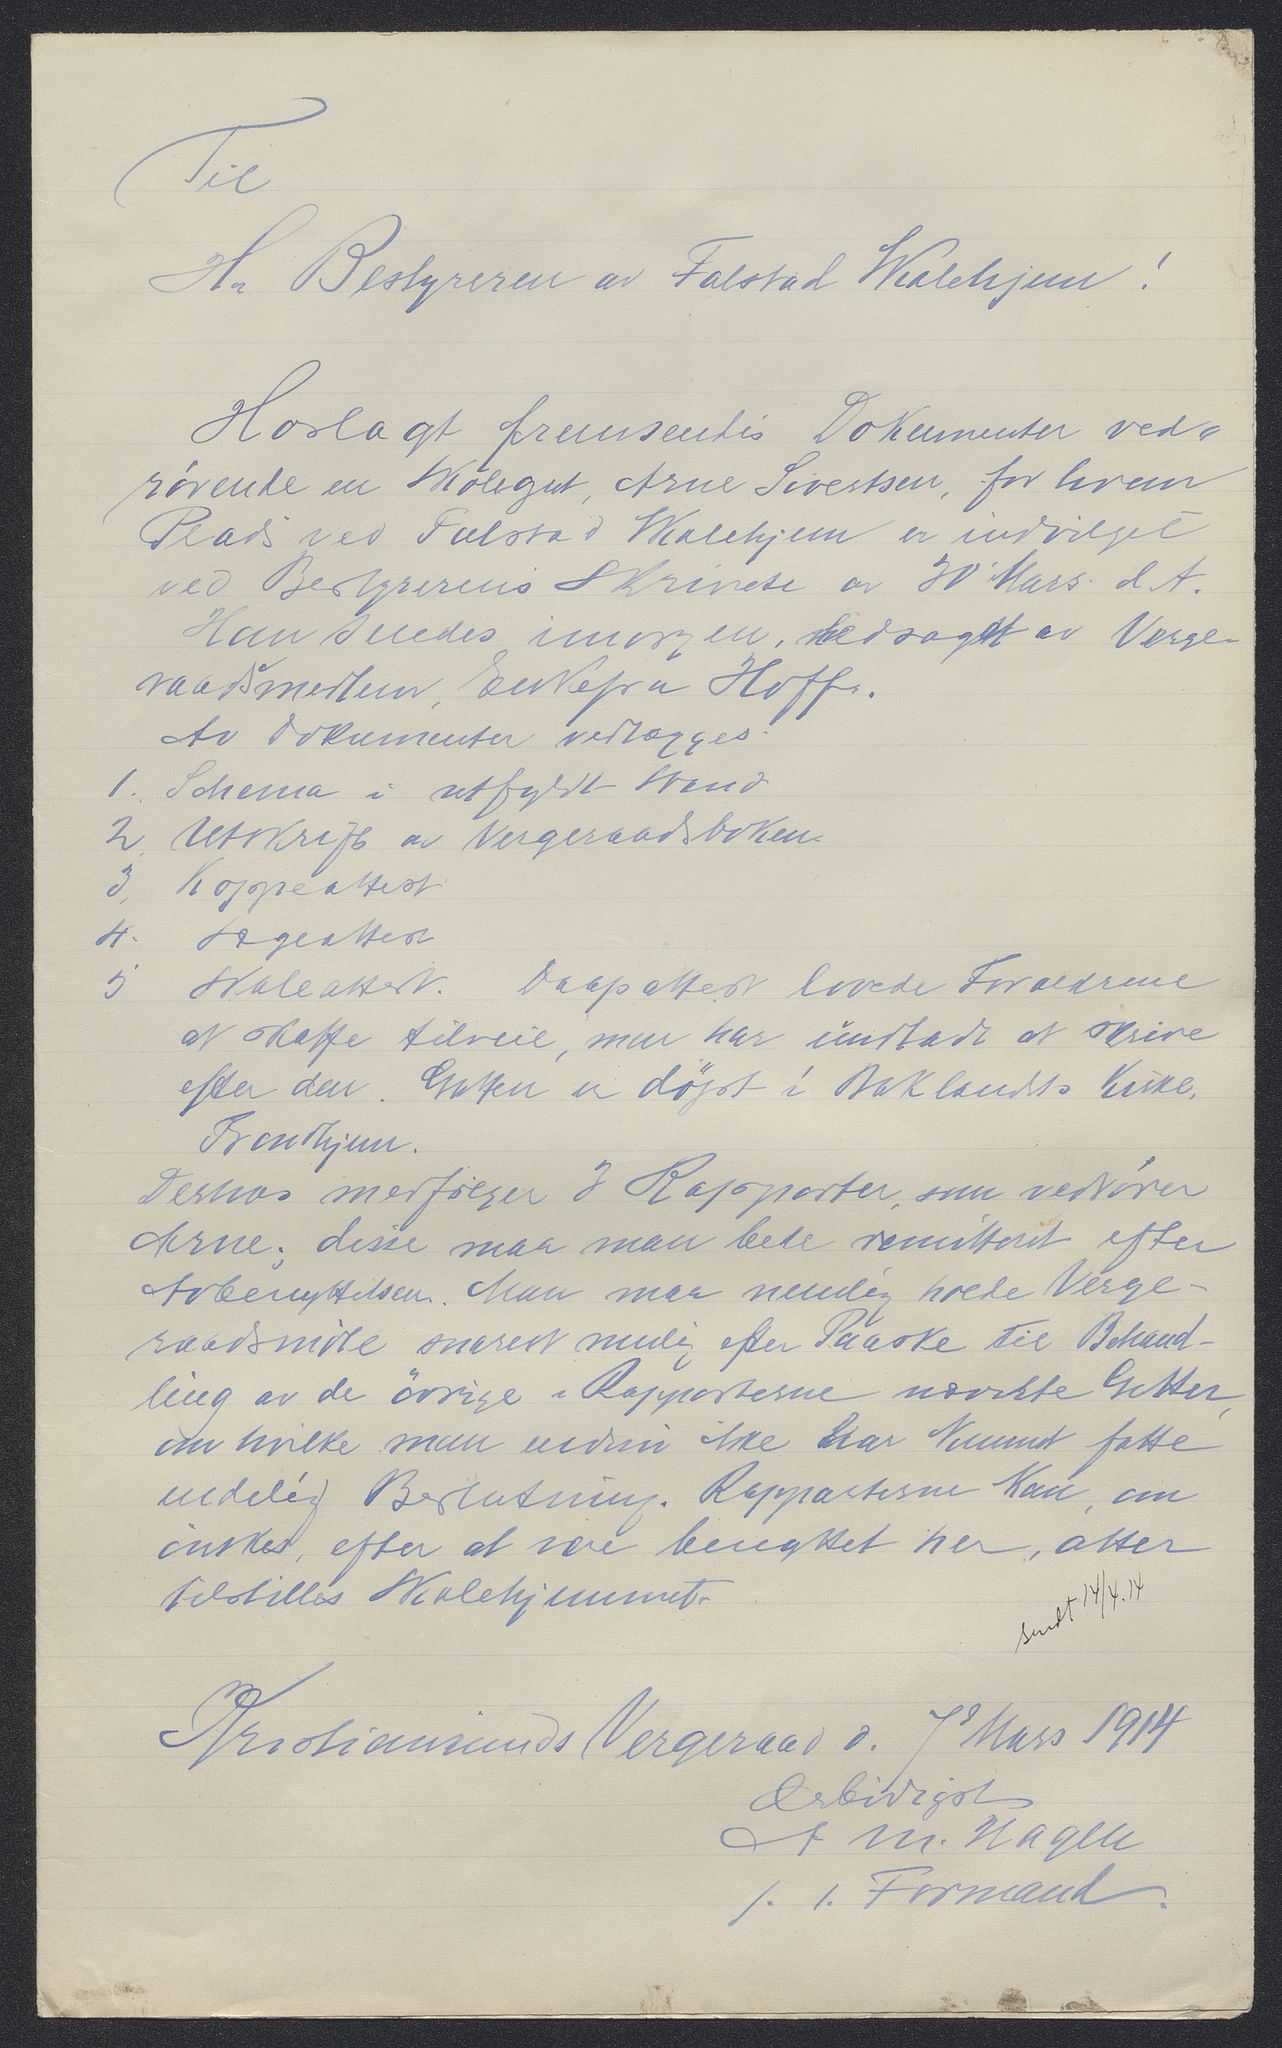 Til
Hr Bestyreren av Falstad Skolehjem!
Hoslagt fremsendes Dokumenter ved-
rörende en Skolegut, Arne Sivertsen, for hvem
Plads ved Falstad Skolehjem er indvilget
ved Bestyrerens Skrivelse av 30 Mars d. A.
Han sendes imorgen, ledsaget av Verge-
raadsmedlem, Enkefru Hoff.
Av Dokumenter vedlægges
1. Schema i utfyldt Stand
2. Utskrift av Vergeraadsboken.
3. Koppeattest
4. Lægeattest
5 Skoleattest. Daapattest lovede Forældrene
at skaffe tilveie, men har undladt at skrive
efter den. Gutten er döpt i Baklandets Kirke,
Trondhjem.
Derhos medfølger 3 Rapporter, som vedrörer
Arne; disse maa man bede remitteret efter
Avbenyttelsen. Man maa nemlig holde Verge-
raadsmöte snarest mulig efter Paaske til Behand-
ling av de övrige i Rapporterne nævnte Gutter,
om hvilke man endnu ikke har kunnet fatte
endelig Beslutning. Rapporterne kan, om
önskes, efter at være benyttet her, atter
tilstilles Skolehjemmet.
sendt 14/4.14
Kristiansunds Vergeraad d. 7de Mars 1914
Ærbödigst
A M. Hagen
f. t. Formand.